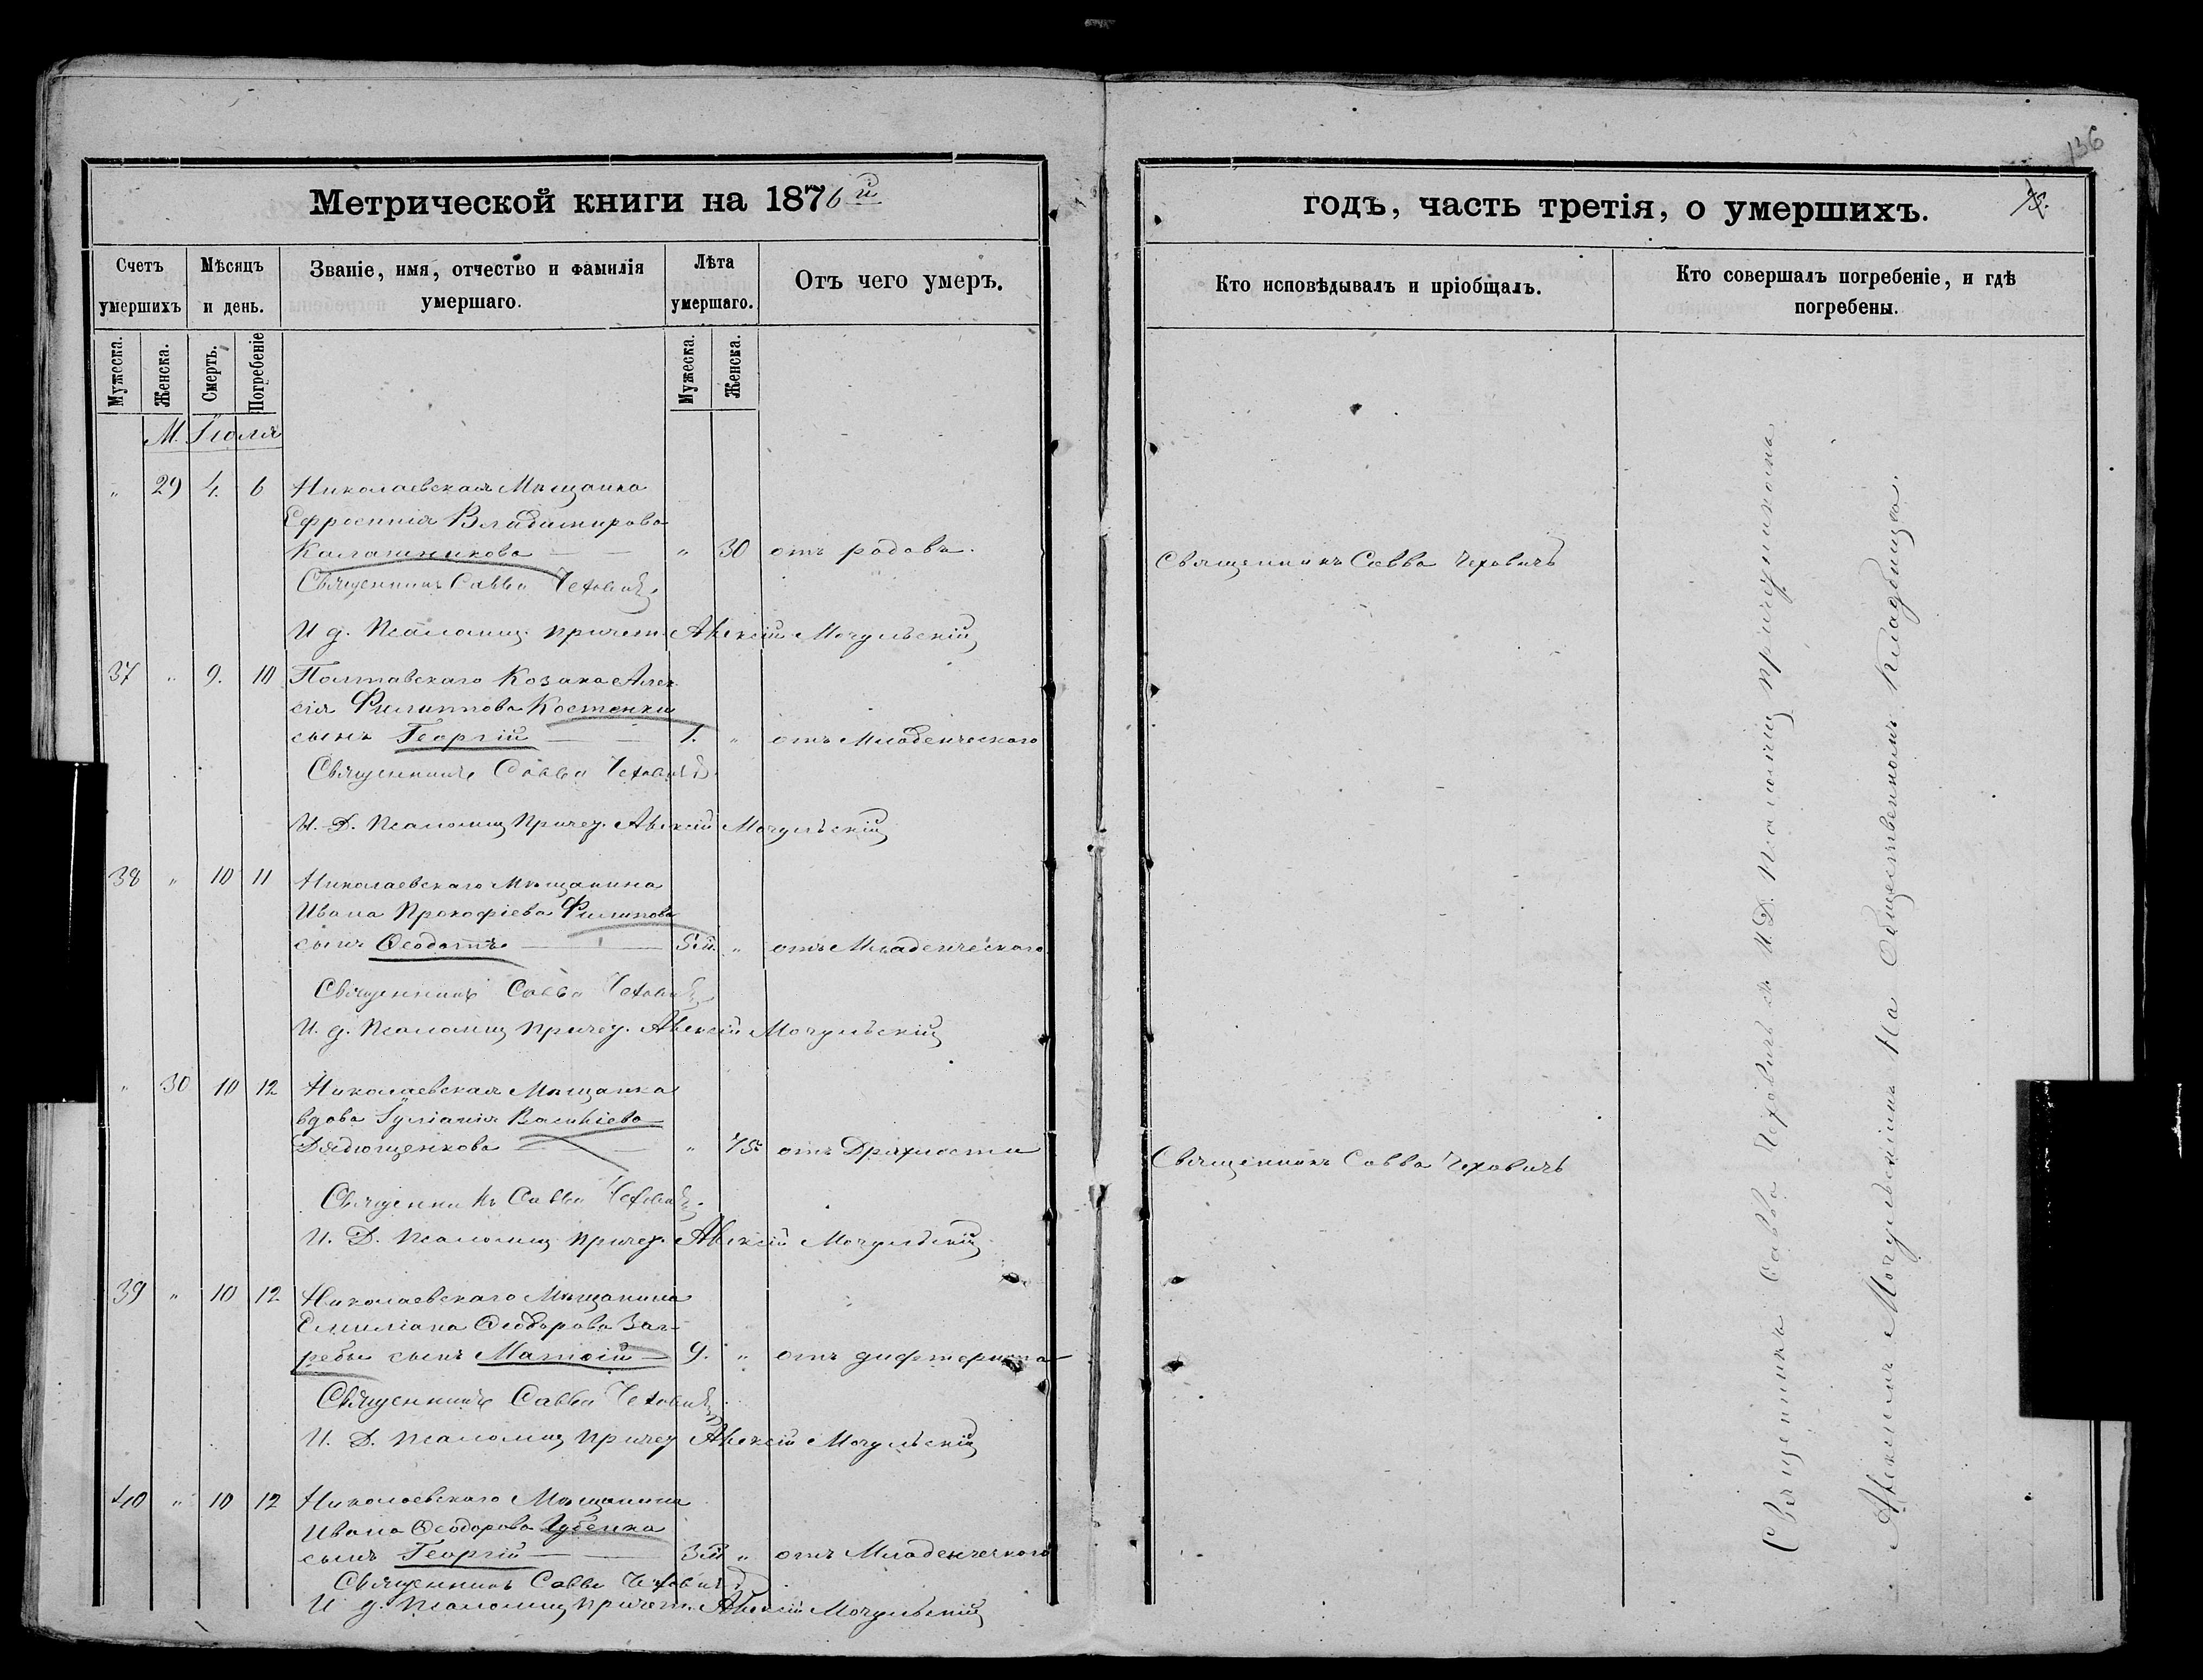 136
Метрической книги на 1876й
годъ, часть третія, о умершихъ.
Счетъ умершихъ
Мѣсяцъ и день.
Званіе, имя, отчество и фамилія умершаго.
Лѣта умершаго.
Отъ чего умеръ.
Кто исповѣдывалъ и пріобщалъ.
Кто совершалъ погребеніе, и гдѣ погребены.
Мужеска.
Женска.
Смерть.
Погребеніе
Мужеска.
Женска.
М. Іюля
" 29 4. 6 Николаевская Мѣщанка
Ефросинія Владимирова
Калашникова " 30 отъ родовъ. Священникъ Савва Чеховичъ
Священникъ Савва Чеховичъ
И д. Псаломщ. причет. Алексій Мочульскій
37 " 9. 10 Полтавскаго Козака Алек
сія Филиппова Костенки
сынъ Георгій 1. " отъ Младенческаго
Священникъ Савва Чеховичъ
И. Д. Псаломщ Причет. Алексій Мочульскій
38 " 10 11 Николаевскаго Мѣщанина
Ивана Прокофіева Филипова
сынъ Ѳеодотъ 5м. " отъ Младенческаго
Священникъ Савва Чеховичъ
И. д. Псаломщ Причет. Алексій Мочульскій
" 30 10 12 Николаевская Мѣщанка
вдова Іуліанія
Дядющенкова " 75 отъ Дряхлости Священникъ Савва Чеховичъ
Священникъ Савва Чеховичъ.
И. Д. Псаломщ Причет. Алексій Мочульскій
39 " 10 12 Николаевскаго Мѣщанина
Емиліана Ѳеодорова Заг-
ребы сынъ Матѳій 9. " отъ дифтерита
Священникъ Савва Чеховичъ
И. Д. Псаломщ Причет Алексій Мочульскій
40 " 10 12 Николаевскаго Мѣщанина
Ивана Ѳеодорова Губенка
сынъ Георгій 3м " отъ Младенческаго
Священникъ Савва Чеховичъ
И д. Псаломщ причет. Алексій Мочульскій
Священникъ Савва Чеховичъ съ И. Д. Псаломщ причетникомъ
Алексіемъ Мочульскимъ На Общественномъ Кладбищѣ.